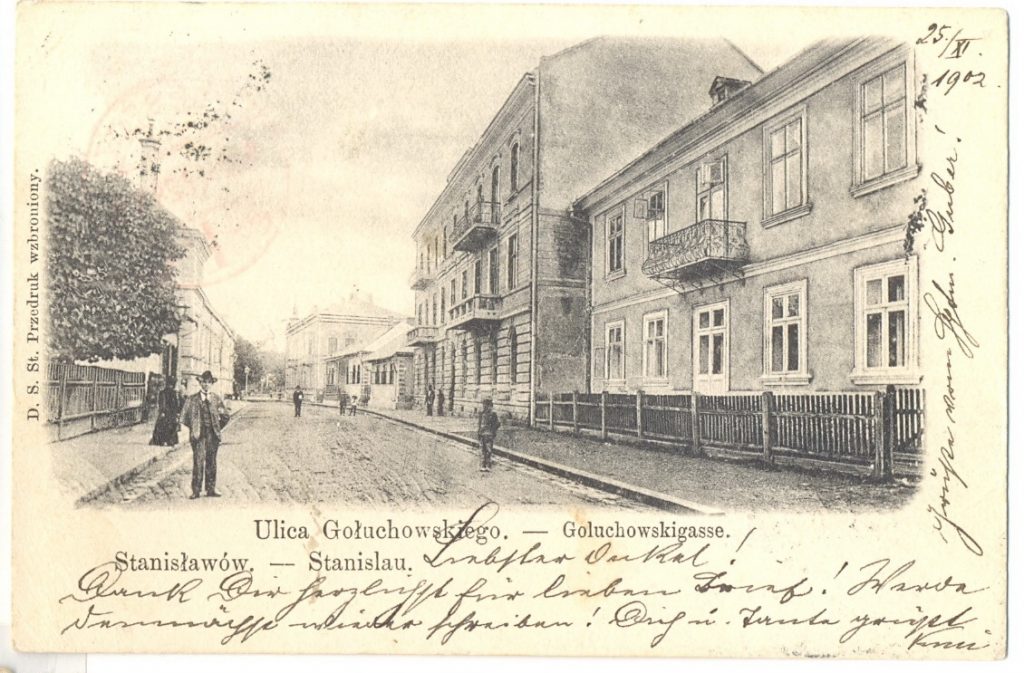 25./XI.
1902.
D. S. St. Przedruk wzbroniony.
Grüße vom Hrn. Huber!
Ulica Gołuchowskiego. — Goluchowskigasse.
Stanisławów. — Stanislau.
Liebster Onkel!
Dank Dir herzlichst für lieben Brief! Werde
demnächst wieder schreiben! Dich u. Tante grüßt